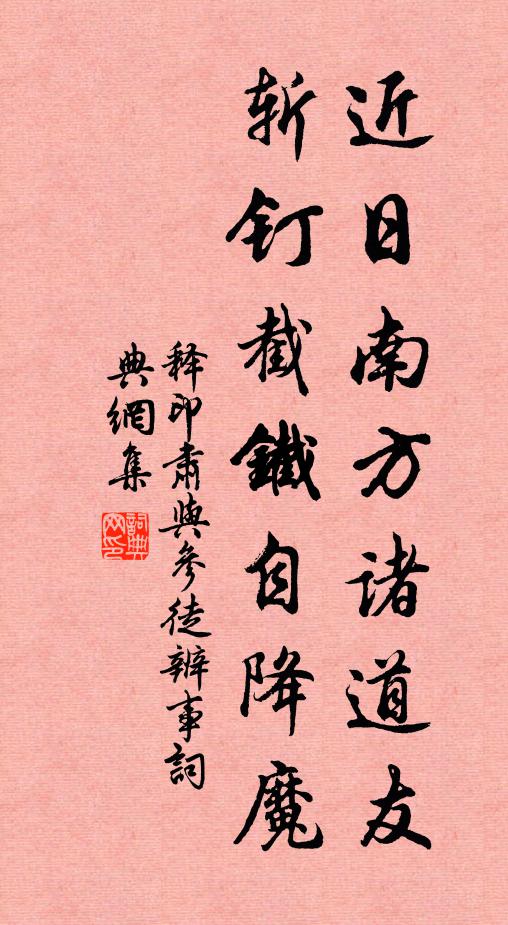 近日南方诸道友
斩钉截鐵自降魔
释印肃與參徒辦事詞
典網集
詞典网印